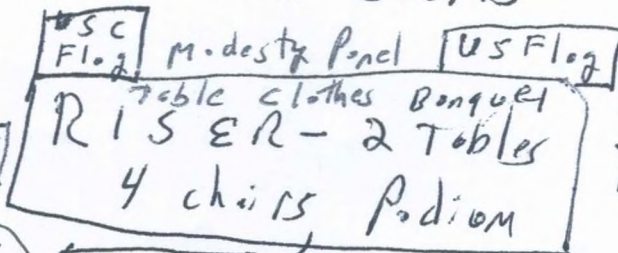 USC
Flag
Modesty Panel
US Flag
Table Clothes Banquet
RISER - 2 Tables
4 chairs Podium